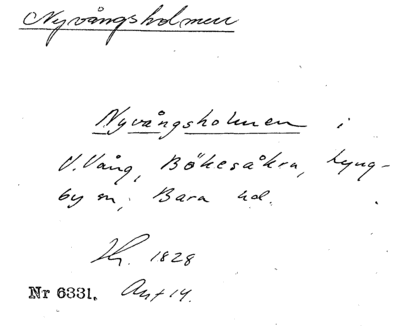 Nyvångsholmen
Nyvångsholmen i
V. Vång, Bökesåkra, Lyng-
by sn, Bara hd.
1828
Nr 6331. Ant 14.